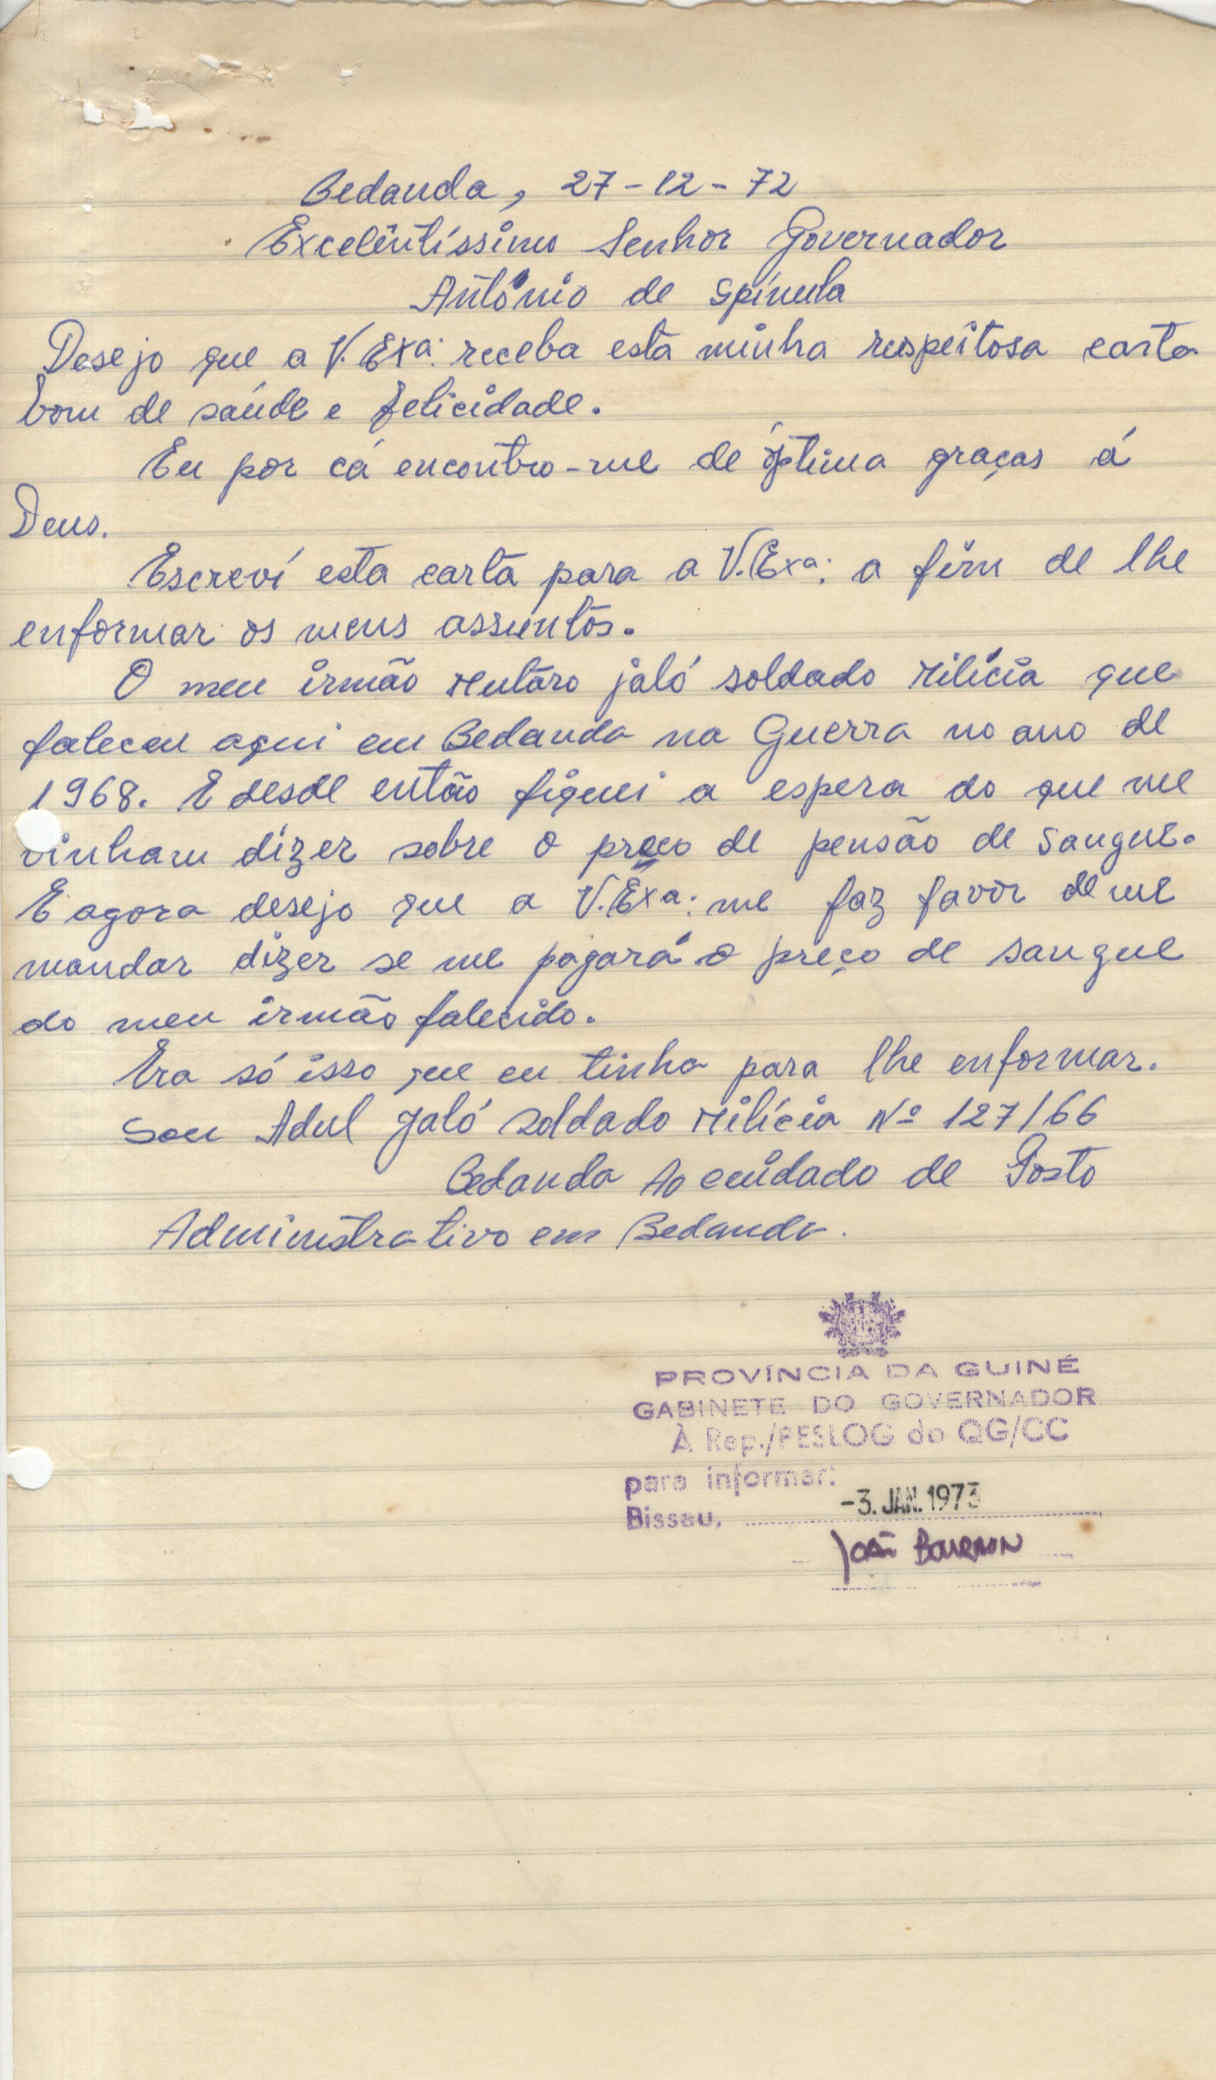 Bedanda, 27-12-72
Excelêntíssimo Senhor Governador
António de Spínula
Desejo que a V. Exa: receba esta minha respeitosa carta
bom de saúde e felicidade.
Eu por cá encontro-me de óptima graças á
Deus.
Escreví esta carta para a V. Exa: a fim de lhe
enformar os meus assuntos.
O meu irmão Mutaro jaló soldado Milícia que
faleceu aqui em Bedanda na Guerra no ano de
1968. E desde então fiquei a espera do que me
vinham dizer sobre o preço de pensão de Sangue.
E agora desejo que a V. Exa: me faz favor de me
mandar dizer se me pagará o preço de sangue
do meu irmão falecido.
Era só isso que eu tinha para lhe enformar.
Sou Adul Jaló Soldado Milícia Nº 127/66
Bedanda Ao cuidado de Posto
Administrativo em Bedanda.
PROVÍNCIA DA GUINÉ
GABINETE DO GOVERNADOR
À Rep./PESLOG do QG/CC
para informar:
Bissau, -3. JAN. 1973
João